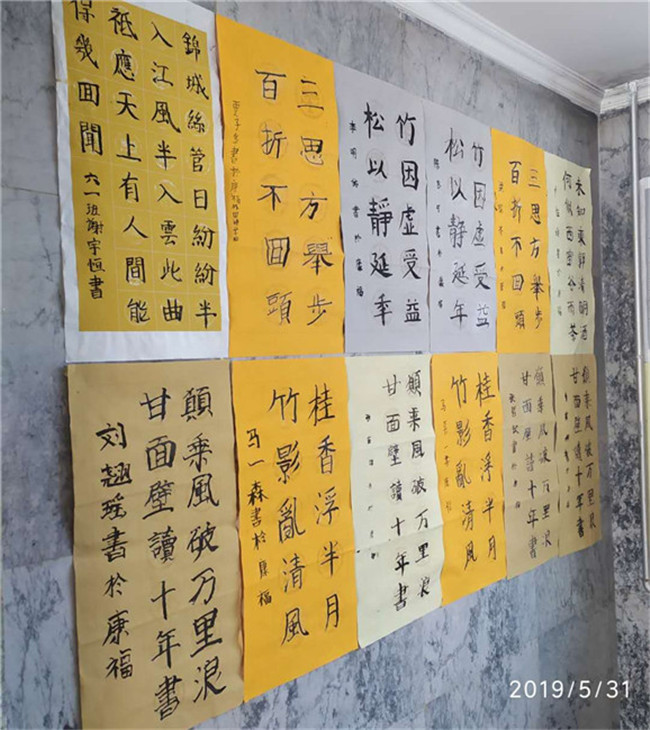 錦城絲管日紛紛半
入江風半入雲此曲
祗應天上有人間能
得幾回聞
六一班謝宇恒書
三思方舉步
百折不回頭
竹因虛受益
松以靜延季
竹因虛受益
松以靜延年
三思方舉步
百折不回頭
未知東郭清明酒
何似西窗谷雨茶
願乘風破万里浪
甘面壁讀十年書
刘翘瑶書於康福
桂香浮半月
竹影亂清風
马一森書於康福
願乘風破万里浪
甘面壁讀十年書
桂香浮半月
竹影亂清風
願乘風破万里浪
甘面壁讀十年書
願乘風破万里浪
甘面壁讀十年書
2019/5/31